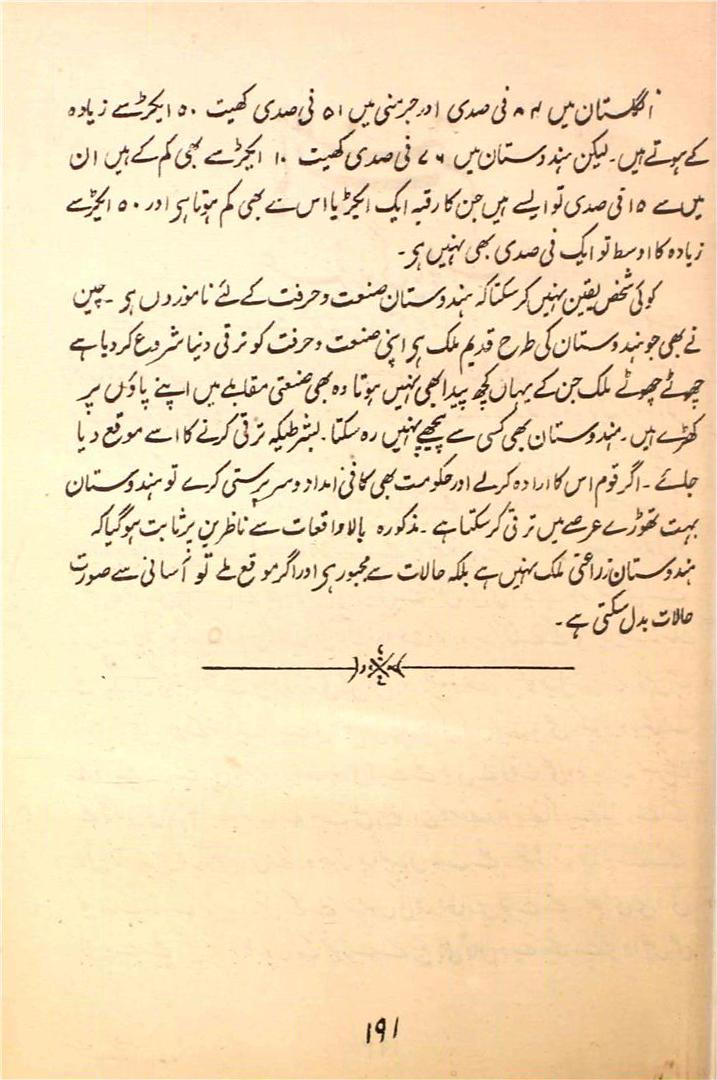 انگلستان میں ۸۴ فی صدی اور جرمنی میں ۵۱ فی صدی کھیت ۵۰ ایکڑ سے زیادہ
کے ہوتے ہیں۔ لیکن ہندوستان میں ۷۶ فی صدی کھیت ۱۰ ایکڑ سے بھی کم کے ہیں ان
میں سے ۱۵ فی صدی تو ایسے ہیں جن کا رقبہ ایک ایکڑ یا اس سے بھی کم ہوتا ہی اور ۵۰ ایکڑ سے
زیادہ کا اوسط تو ایک فی صدی بھی نہیں ہی۔
کوئی شخص یقین نہیں کر سکتا کہ ہندوستان صنعت و حرفت کے لئے ناموزوں ہی ۔ چین
نے بھی جو ہندوستان کی طرح قدیم ملک ہی اپنی صنعت و حرفت کو ترقی دینا شروع کر دیا ہے
چھوٹے چھوٹے ملک جن کے یہاں کچھ پیدا بھی نہیں ہوتا وہ بھی صنعتی مقابلے میں اپنے پاؤں پر
کھڑے ہیں۔ ہندوستان بھی کسی سے پیچھے نہیں رہ سکتا۔ بشرطیکہ ترقی کرنے کا اسے موقع دیا
جائے ۔ اگر قوم اس کا ارادہ کرلے اور حکومت بھی کافی امداد و سرپرستی کرے تو ہندوستان
بہت تھوڑے عرصے میں ترقی کر سکتا ہے ۔ مذکورہ بالا واقعات سے ناظرین پر ثابت ہو گیا کہ
ہندوستان زراعتی ملک نہیں ہے بلکہ حالات سے مجبور ہی اور اگر موقع ملے تو آسانی سے صورت
حالات بدل سکتی ہے ۔
۱۹۱